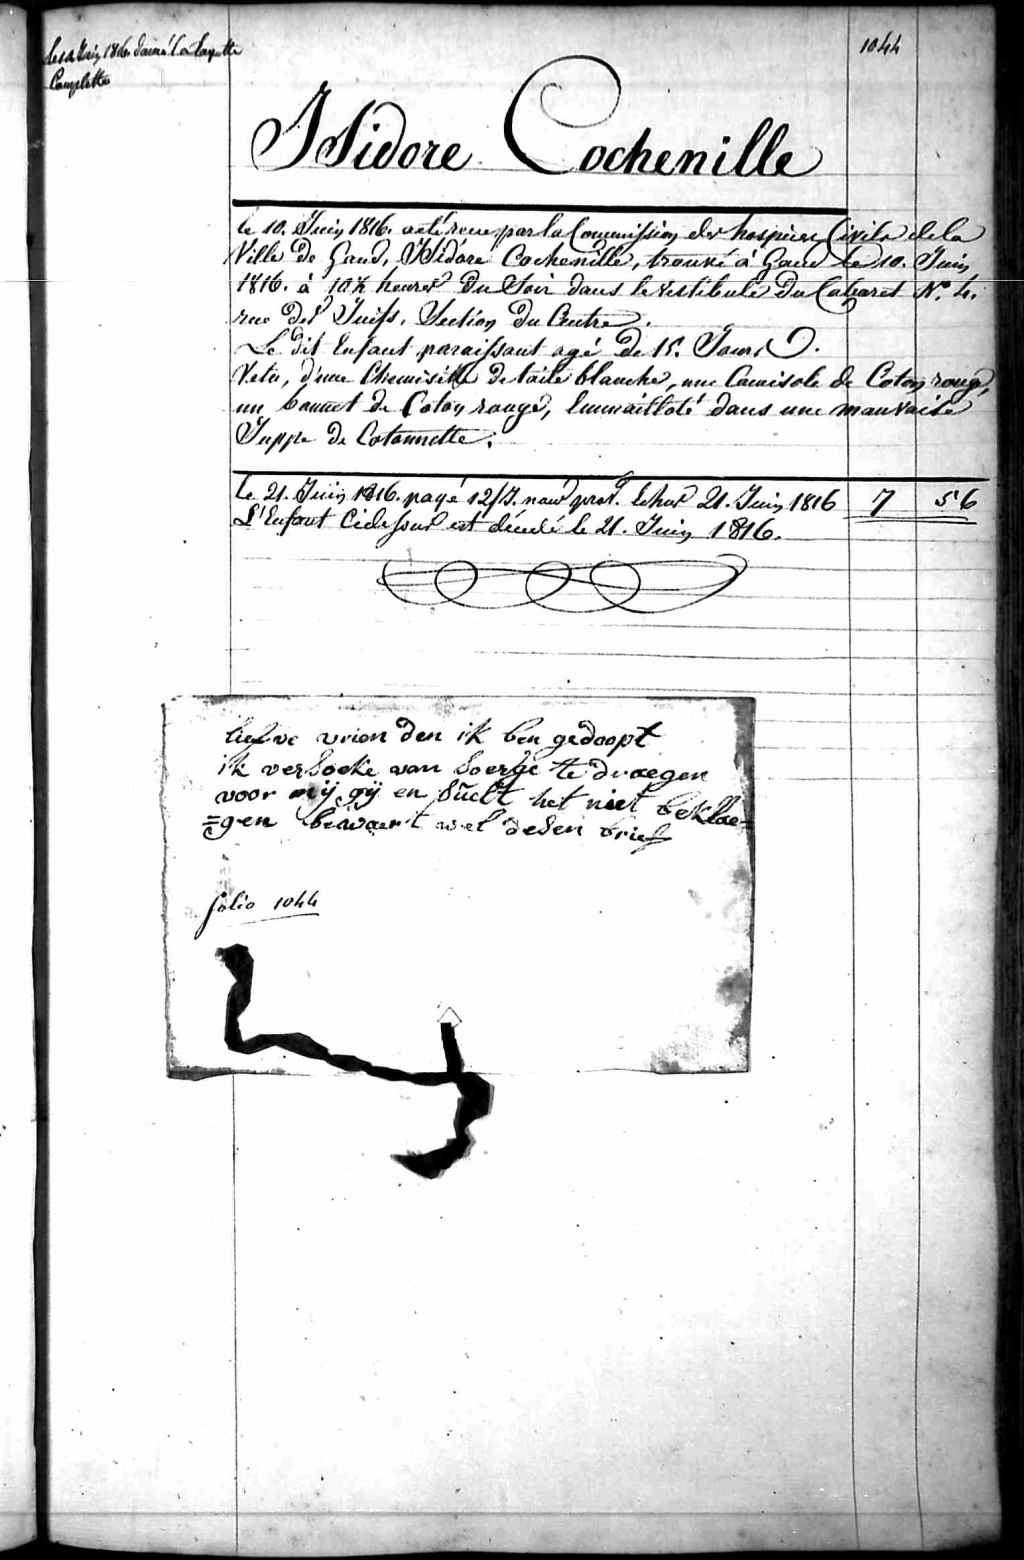 le 12 Juin 1816. donné la layette
Complette
1044
Isidore Cochenille
le 10. Juin 1816. a été reçu par la Commission des hospices Civils de la
Ville de Gand, Isidore Cochenille, trouvé à Gand le 10. Juin
1816. à 10½ heures du Soir dans le Vestibule du Cabaret N.º 4.
rue des Juifs. Section du Centre.
Le dit Enfant paraissant agé de 15. Jours.
Vetu, d'une Chemisette de toile blanche, une Camisole de Coton rouge,
un bonnet de Coton rouge, Emmailloté dans une mauvaise
Juppe de Cotonnette.
Le 21. Juin 1816. payé 12/J. échus 21. Juin 1816 7 56
L'Enfant Cidessus est décédé le 21. Juin 1816.
liefve vrienden ik ben gedoopt
ik versoeke van soerge te draegen
voor mij gij en sùelt het niet beklae=
=gen bewaert wel desen brief
folio 1044